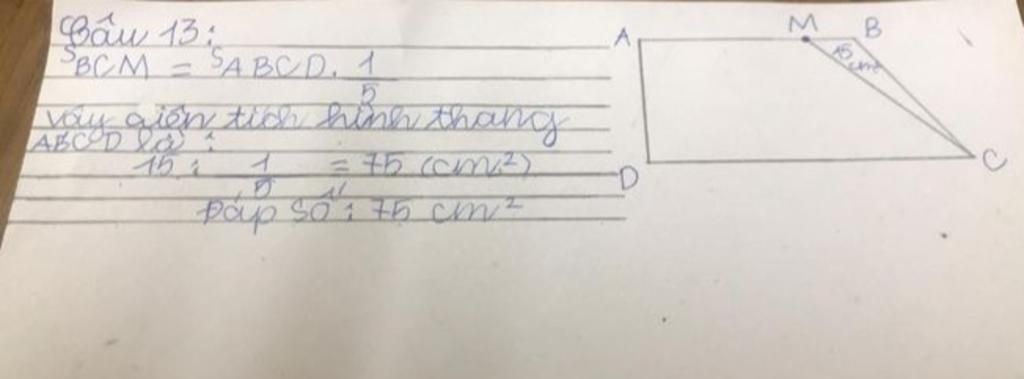 Câu 13:
SBCM = SABCD. 1/5
vậy diện tích hình thang
ABCD là:
15 : 1/5 = 75 (cm²)
Đáp số: 75 cm²
A M B
15 cm²
D C